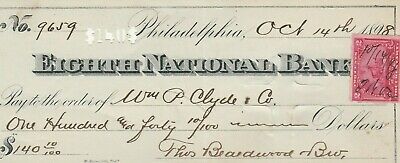 No. 9659 Philadelphia, Oct 14th 1898
EIGHTH NATIONAL BANK
Pay to the order of Wm P. Clyde & Co.
One Hundred and forty 10/100 Dollars
$140 10/100 Thos Beardwood & Bro.